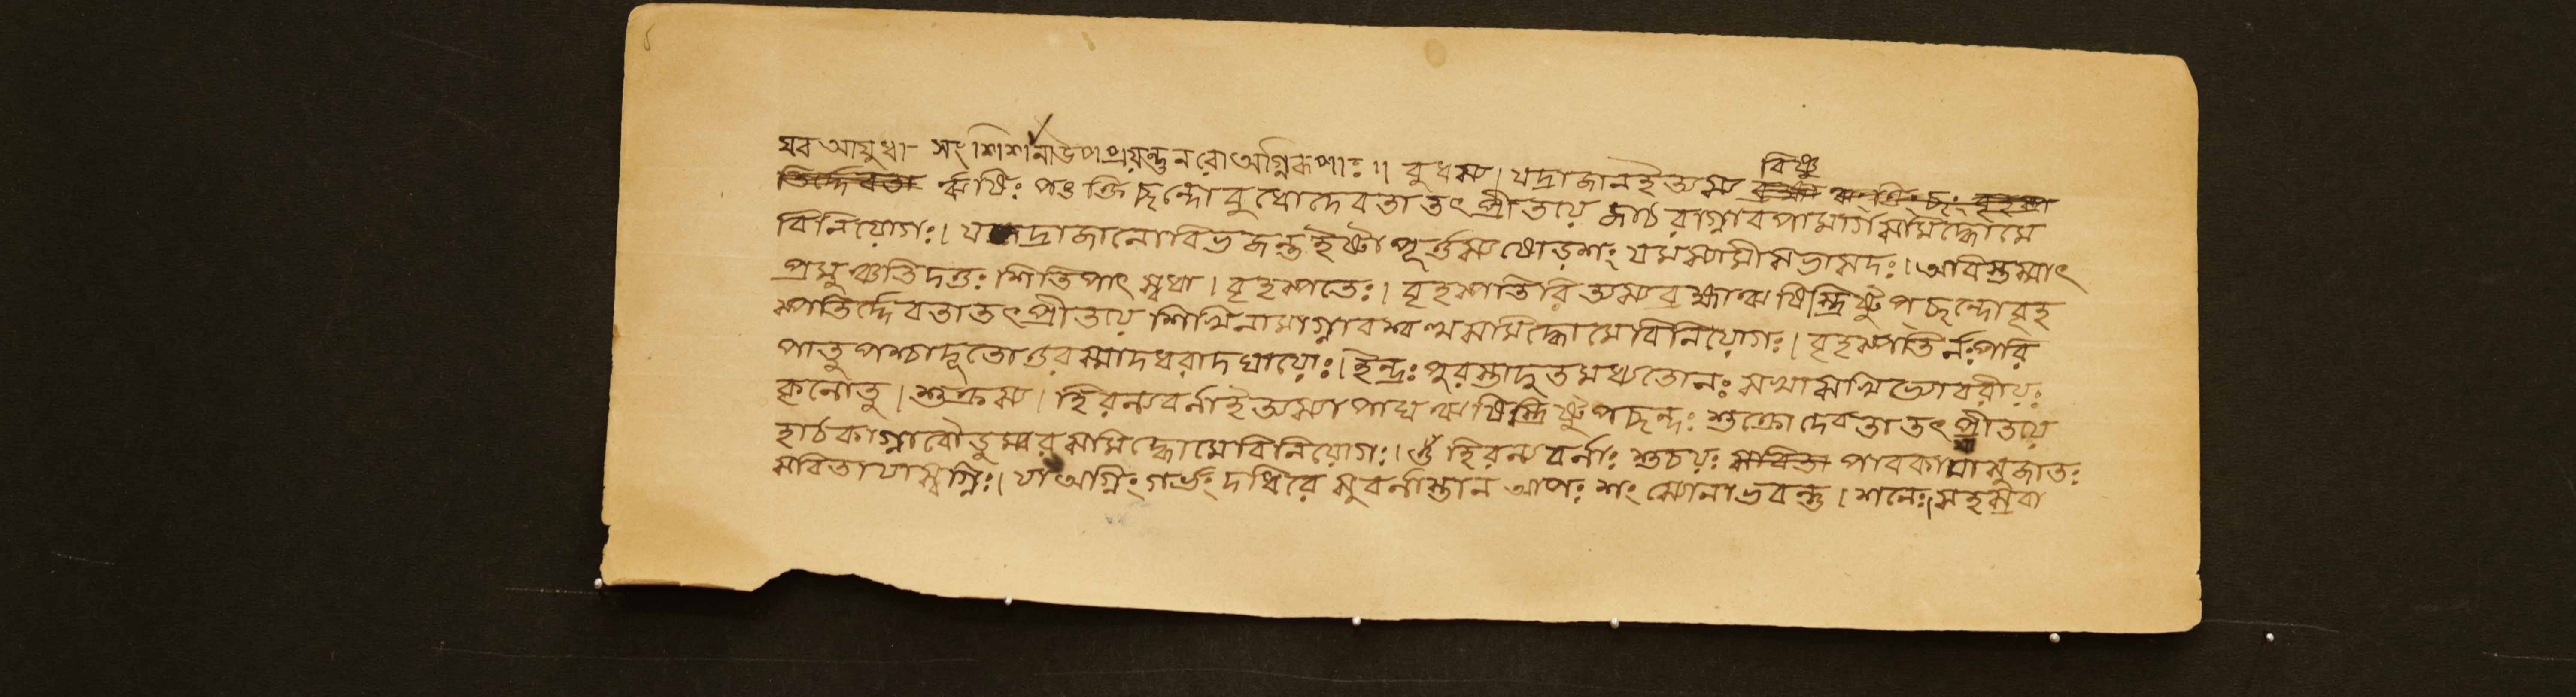 ষব আয়ুধা সংশিশানাউপপ্রয়ন্তুনরোঅগ্নিরূপাঃ ॥ বুধস্য । যদ্রাজানইত্যস্য বিষ্ণু
ঋষিঃ পঙক্তিচ্ছন্দোবুধোদেবতাতৎপ্রীতয়ে জাঠরাগ্নাবপামার্গসমিদ্ধোমে
বিনিয়োগঃ । যদ্রাজানোবিভজন্তইষ্টাপূর্ত্তস্য ষোড়শং যমস্যামীসভাসদঃ । অবিস্তস্মাৎ
প্রমুঞ্চতিদত্তঃ শিতিপাৎ স্বধা । বৃহস্পতেঃ । বৃহস্পতিরিত্যস্যব্রহ্মাঋষিস্ত্রিষ্টুপ্ছন্দোবৃহ
স্পতির্দ্দেবতাতৎপ্রীতয়ে শিখিনামাগ্নাবশ্বত্থসমিদ্ধোমেবিনিয়োগঃ । বৃহস্পতির্নঃপরি
পাতুপশ্চাদূতোত্তরস্মাদধরাদঘায়োঃ । ইন্দ্রঃ পুরস্তাদুতমধ্যতোনঃ সখাসখিভ্যোবরীয়ঃ
কৃনোতু । শুক্রস্য । হিরন্যবর্নাইত্যস্যাপাঘ ঋষিস্ত্রিষ্টুপছন্দঃ শুক্রোদেবতাতৎপ্রীতয়ে
হাঠকাগ্নাবৌডুম্বরসমিদ্ধোমেবিনিয়োগঃ । ওঁ হিরন্যবর্নাঃ শুচয়ঃ পাবকাযাসুজাতঃ
সবিতাযাস্বগ্নিঃ । যাঅগ্নিংগর্ভং দধিরে সুবর্নাস্তান আপঃ শং স্যোনাভবন্তু । শনেঃ । সহস্রবা